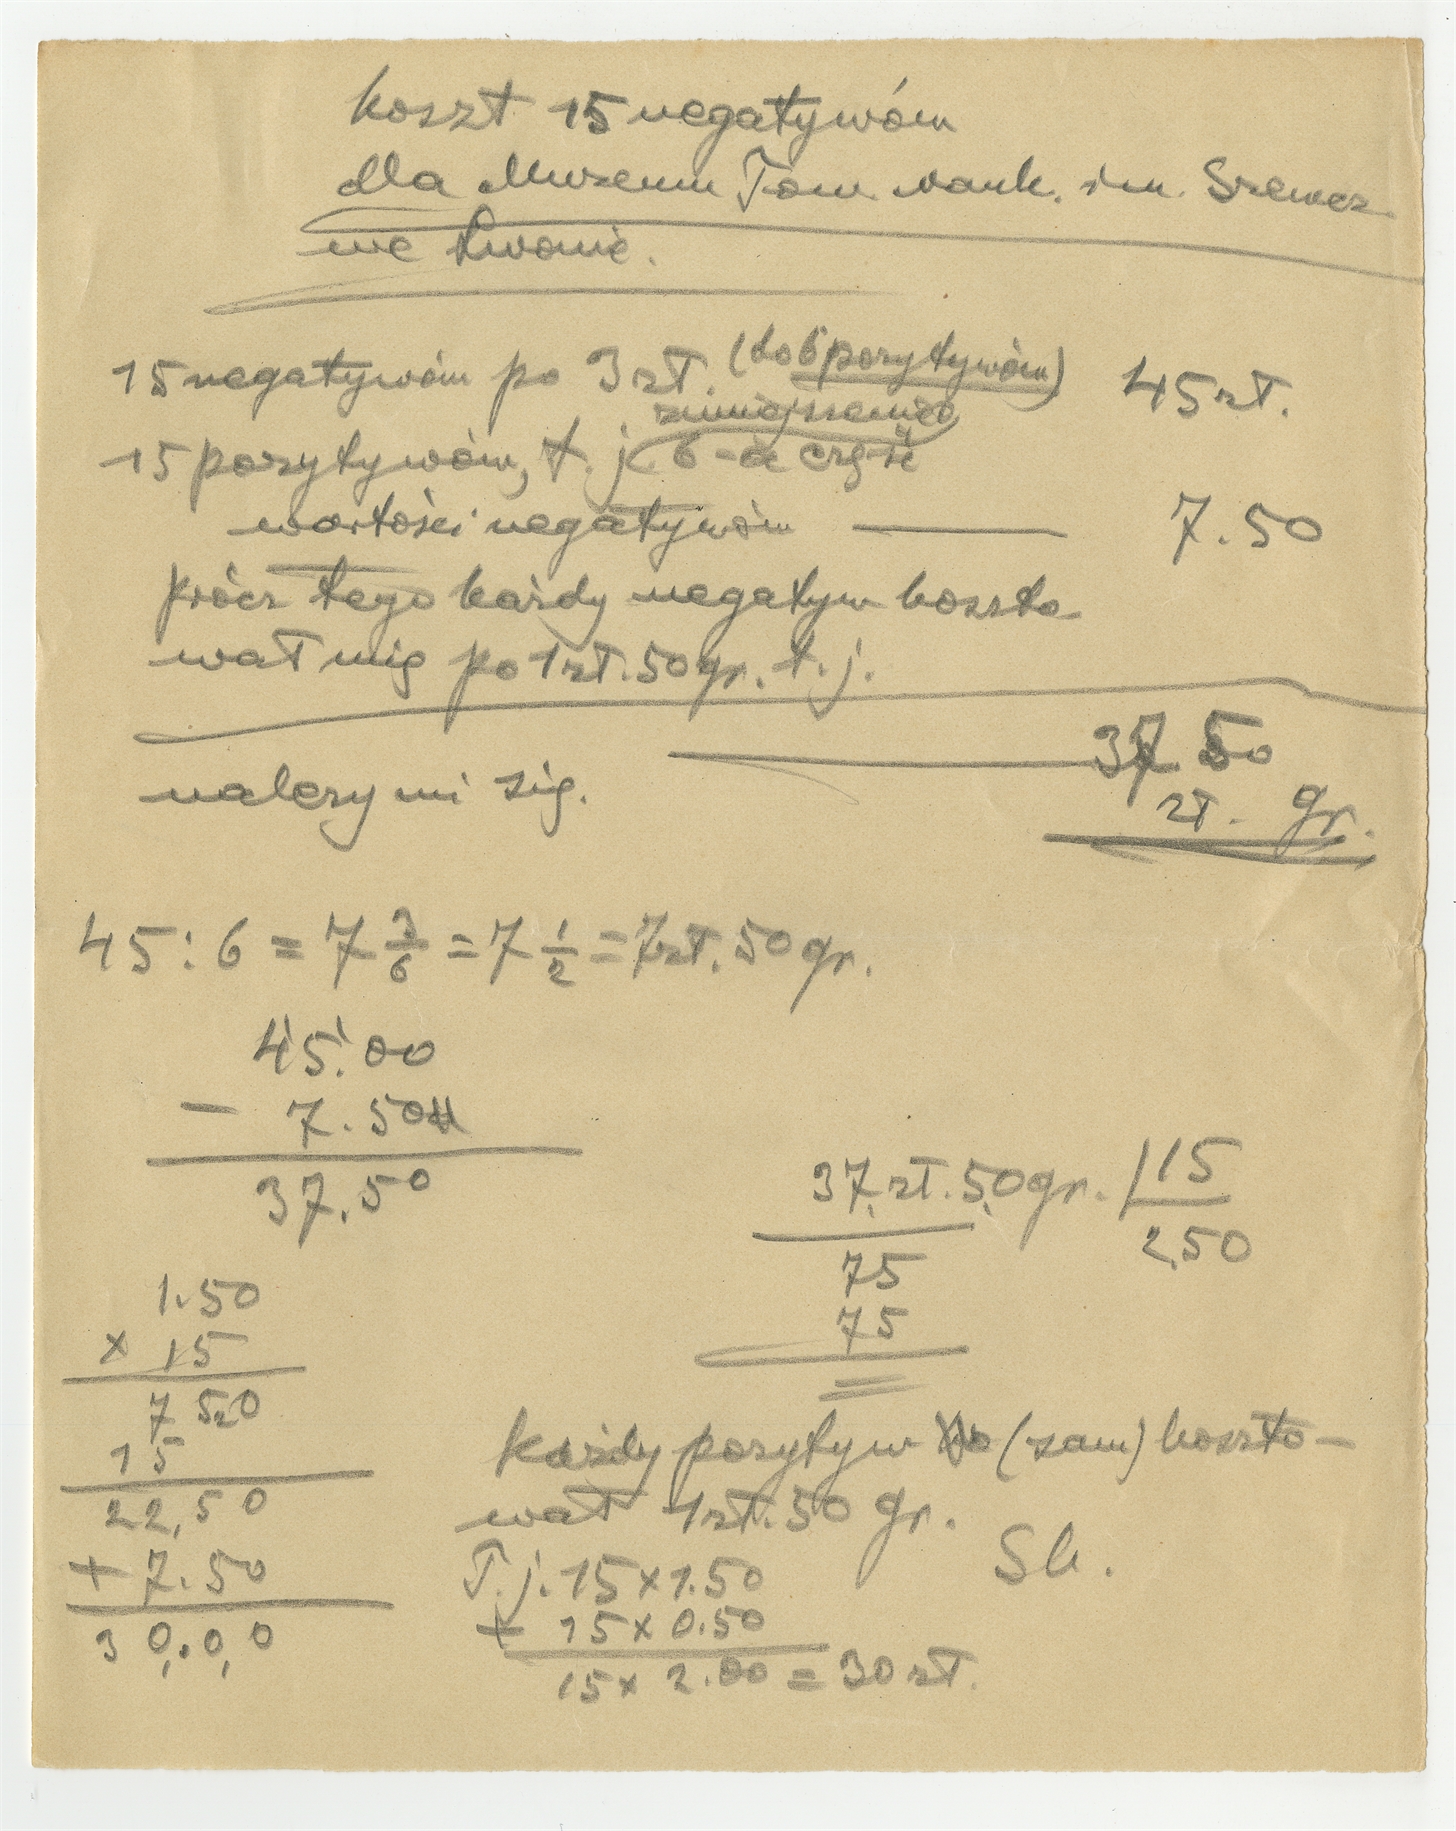 koszt 15 negatywów
dla Muzeum Tow. nauk. im. Szewcz.
we Lwowie.
15 negatywów po 3 zł. (do 6 pozytywów) 45 zł.
zmniejszenie
15 pozytywów, t. j. 6-a część
wartości negatywów — 7.50
prócz tego każdy negatyw koszto
wał mię po 1 zł. 50 gr. t. j.
37 50
należy mi się. zł. gr.
45 : 6 = 7 3/6 = 7 1/2 = 7 zł. 50 gr.
45.00
- 7.50
37.50
37 zł. 50 gr. | 15
2,50
75
75
1.50
× 15
7 50
15
22,50
+ 7.50
30.00
Każdy pozytyw (sam) koszto-
wał 1 zł. 50 gr.
T. j. 15 × 1.50
+ 15 × 0.50
15 × 2.00 = 30 zł.